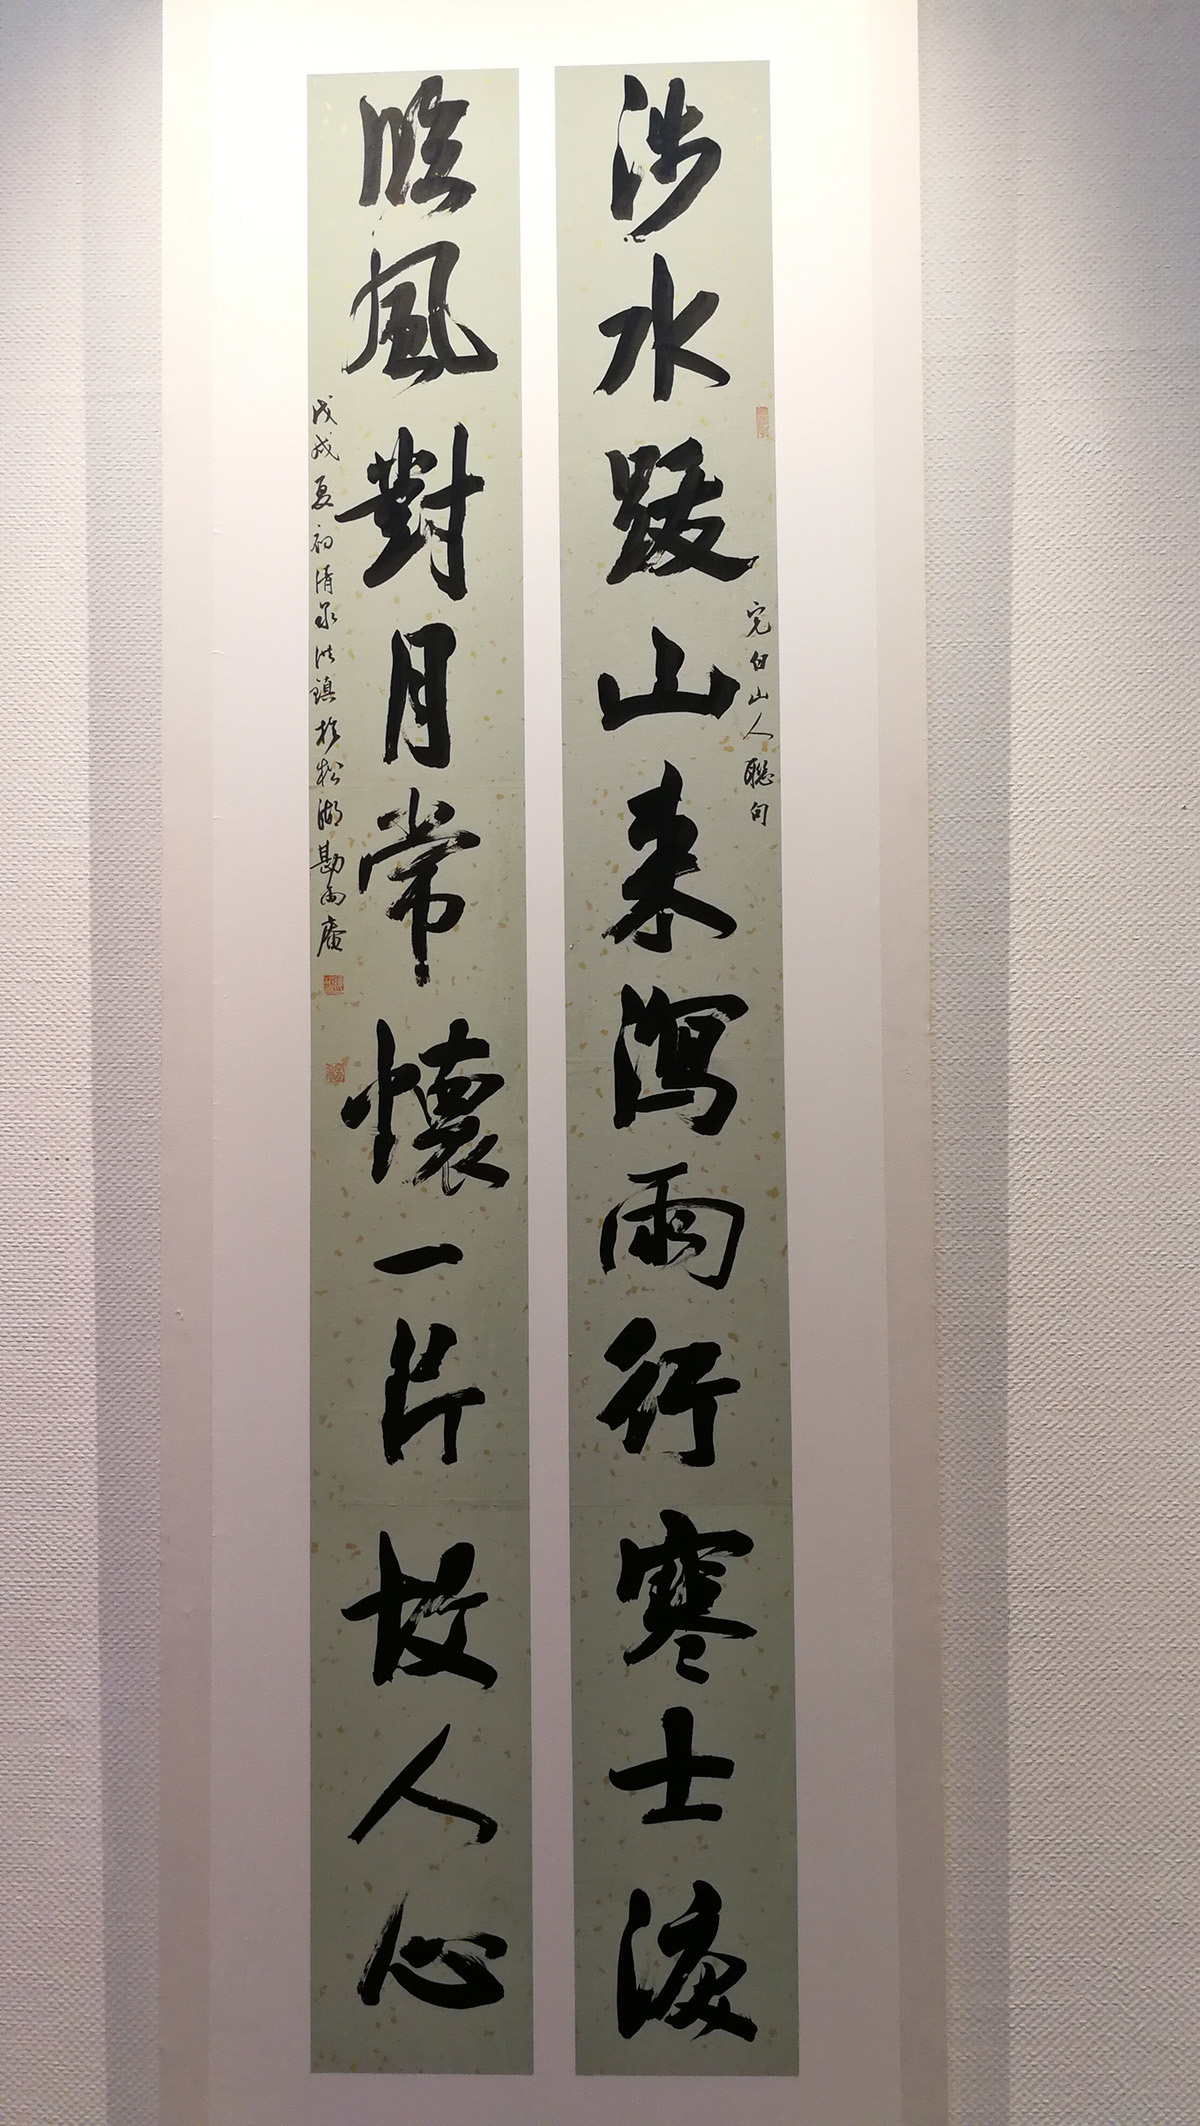 涉水跋山来瀉雨行寒士淚
完白山人聯句
臨風對月常懷一片故人心
戊戌夏初清泉洪鎮於松湖勘雨庵